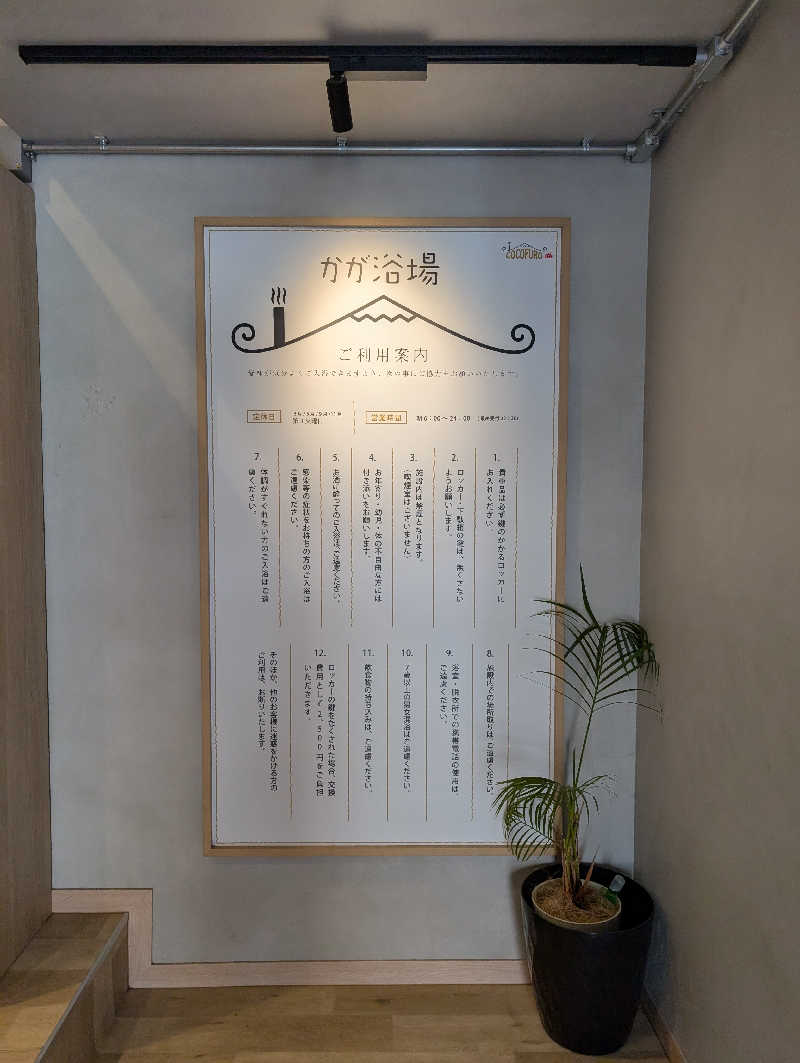 かが浴場
COCOFURO
ご利用案内
定休日
営業時間
朝6:00〜24:00
1.
貴重品は必ず鍵のかかるロッカーに
お入れください。
2.
ロッカー・下駄箱の鍵は、無くさない
ようお願いします。
3.
施設内は禁煙となります。
(喫煙室はございません)
4.
お年寄り・幼児・体の不自由な方には
付き添いをお願いします。
5.
お酒に酔ってのご入浴はご遠慮ください。
6.
感染等の症状をお持ちの方のご入浴は
ご遠慮ください。
7.
体調がすぐれない方のご入浴はご遠
慮ください。
8.
施設内での場所取りは、ご遠慮ください。
9.
浴室・脱衣所での携帯電話の使用は、
ご遠慮ください。
10.
7歳以上の男女混浴はご遠慮ください。
11.
飲食物の持ち込みは、ご遠慮ください。
12.
ロッカーの鍵をなくされた場合、交換
費用として2,500円をご負担
いただきます。
そのほか、他のお客様に迷惑をかける方の
ご利用は、お断りいたします。